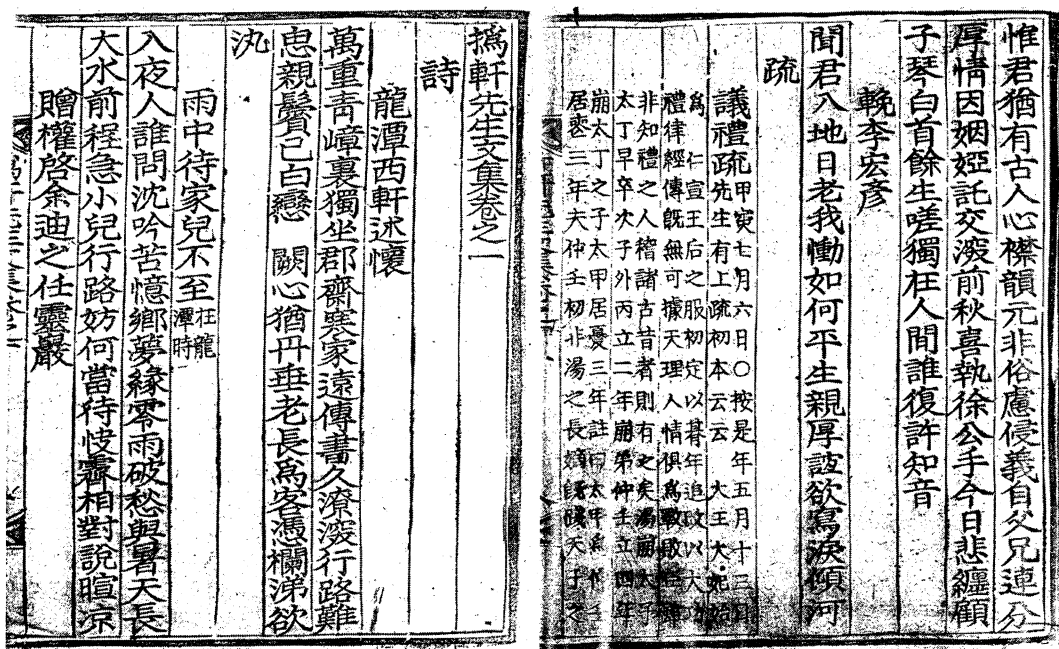 惟君猶有古人心襟韻元非俗慮侵義自父兄連分
厚情因姻婭託交深前秋喜執徐公手今日悲纏顧
子琴白首餘生嗟獨在人間誰復許知音
輓李宏彦
聞君入地日老我慟如何平生親厚誼欲寫淚傾河
疏
議禮疏先生有上疏初本云云 大王大妃始
甲寅七月六日○按是年五月十三日
爲 仁宣王后之服初定以朞年追改以大功
禮律經傳旣無可據天理人情俱爲
非知禮之人稽諸古昔者則有之矣湯崩太子
太丁早卒次子外丙立二年崩第仲壬立四年
崩太丁之子太甲居憂三年註曰太甲爲仲壬
居喪三年夫仲壬初非湯之長嫡天子之
撝軒先生文集卷之一
詩
龍潭西軒述懷
萬重靑嶂裏獨坐郡齋寒家遠傳書久潦深行路難
思親鬢已白戀 闕心猶丹垂老長爲客憑欄涕欲
汍
雨中待家兒不至在龍潭時
入夜人誰問沈吟苦憶鄕夢緣零雨破愁與暑天長
大水前程急小兒行路妨何當待忮霽相對說暄凉
贈權啓余迪之任靈巖